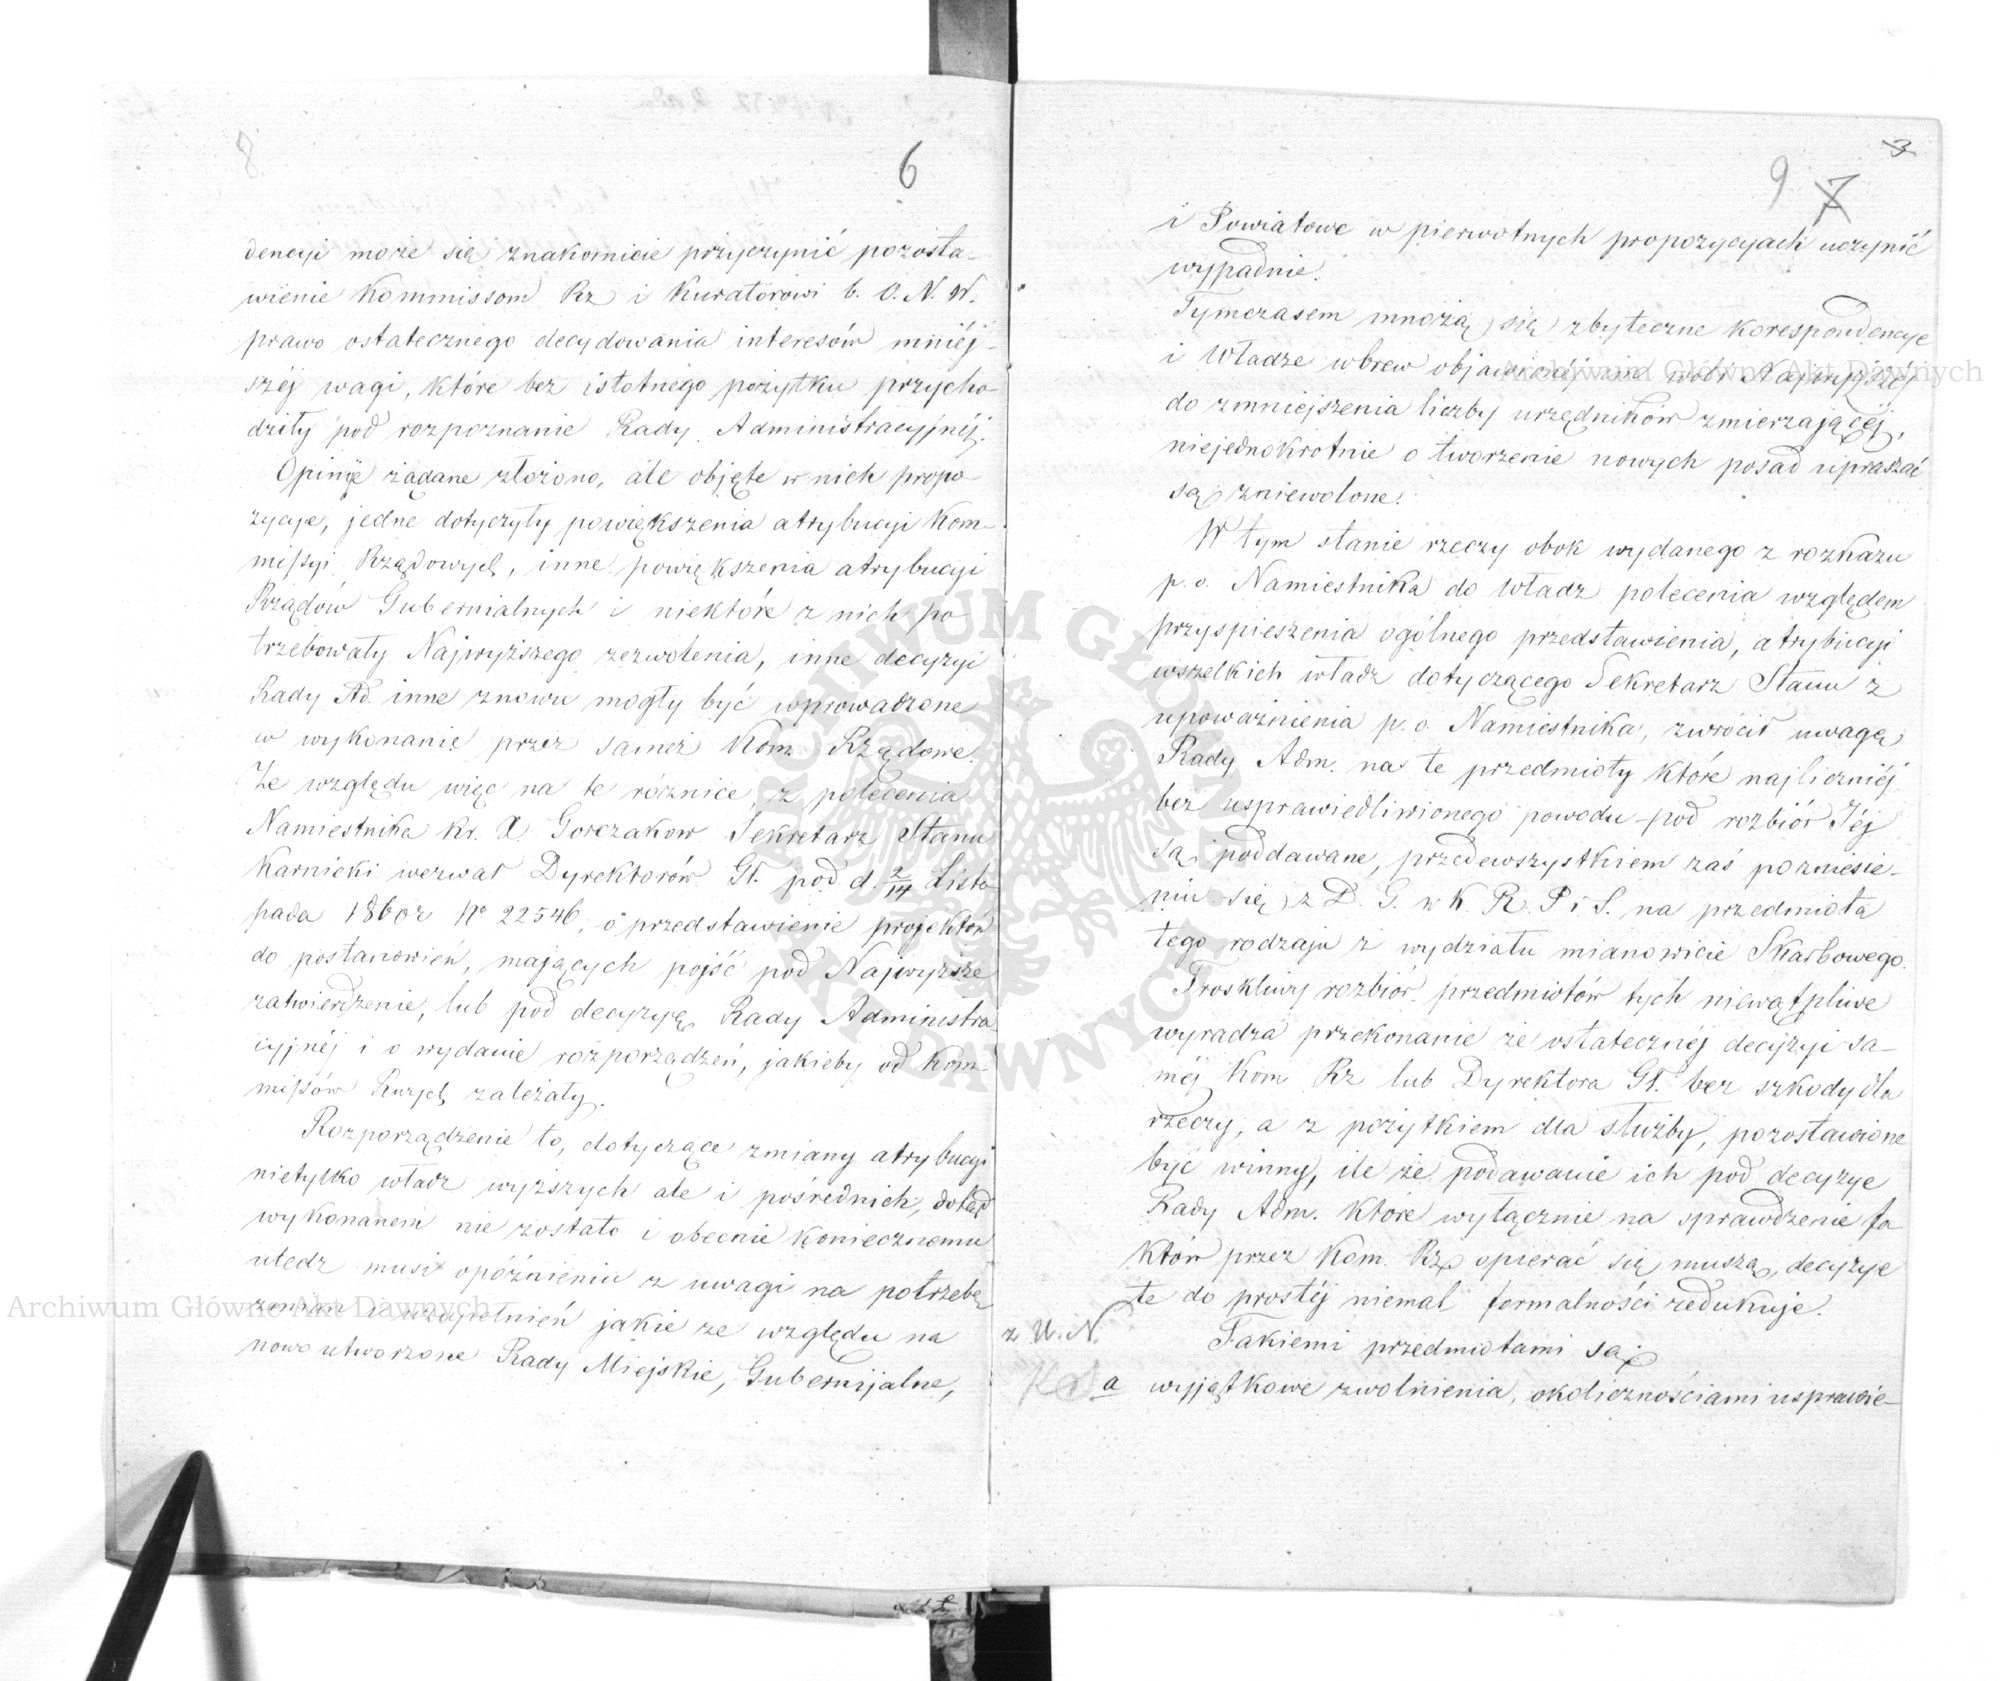 6
dencyi może się znakomicie przyczynić pozosta-
wienie Kommissom Rz i Kuratorowi b. O. N. W.
prawo ostatecznego decydowania interesów mniéj-
széj wagi, które bez istotnego pożytku przycho-
dziły pod rozpoznanie Rady Administracyjnéj.
Opinije żądane złożono, ale objęte w nich propo-
zycye, jedne dotyczyły powiększenia atrybucyi Kom-
missyi Rządowych, inne powiększenia atrybucyi
Rządów Gubernialnych i niektóre z nich po
trzebowały Najwyższego zezwolenia, inne decyzyi
Rady Ad. inne znowu mogły być wprowadzone
w wykonanie przez sameż Kom Rządowe.
Ze względu więc na te różnice, z polecenia
Namiestnika Kr. X. Gorczakow Sekretarz Stanu
Karnicki wezwał Dyrektorów Gł. pod d. 2/14 Listo
pada 1860 r No 22546, o przedstawienie projektów
do postanowień, mających pójść pod Najwyższe
zatwierdzenie, lub pod decyzyę Rady Administra
cyjnéj i o wydanie rozporządzeń, jakieby od Kom-
missów Rwych zależały.
Rozporządzenie to, dotyczące zmiany atrybucyi
nietylko władz wyższych ale i pośrednich, dotąd
wykonanem nie zostało i obecnie koniecznemu
uledz musi opóźnieniu z uwagi na potrzebę
zmian i uzupełnień jakie ze względu na
nowo utworzone Rady Miejskie, Gubernijalne,
3
9 7
i Powiatowe w pierwotnych propozycyach uczynić
wypadnie.
Tymczasem mnożą się zbyteczne korespondencye
i Władze wbrew objawionéj woli Najwyższéj
do zmniejszenia liczby urzędników zmierzającéj,
niejednokrotnie o tworzenie nowych posad upraszać
są zniewolone.
W tym stanie rzeczy obok wydanego z rozkazu
p. o. Namiestnika do władz polecenia względem
przyspieszenia ogólnego przedstawienia, atrybucyi
wszelkich władz dotyczącego Sekretarz Stanu z
upoważnienia p. o. Namiestnika, zwrócił uwagę
Rady Adm. na te przedmioty które najliczniéj
bez usprawiedliwionego powodu pod rozbiór Jéj
są poddawane, przedewszystkiem zaś po zniesie-
niu się z D. G. w K. R. P i S. na przedmiota
tego rodzaju z wydziału mianowicie Skarbowego.
Troskliwy rozbiór przedmiotów tych niewątpliwe
wyradza przekonanie że ostatecznéj decyzyi sa-
méj Kom Rz lub Dyrektora Gł. bez szkody dla
rzeczy, a z pożytkiem dla służby, pozostawione
być winny, ile że podawanie ich pod decyzye
Rady Adm. które wyłącznie na sprawdzenie fa
któw przez Kom. Rz opierać się muszą, decyzye
te do prostéj niemal formalności redukuje.
z U. N. Takiemi przedmiotami są:
a wyjątkowe zwolnienia, okolicznościami usprawie-
Archiwum Główne Akt Dawnych
Archiwum Główne Akt Dawnych
ARCHIWUM GŁÓWNE AKT DAWNYCH